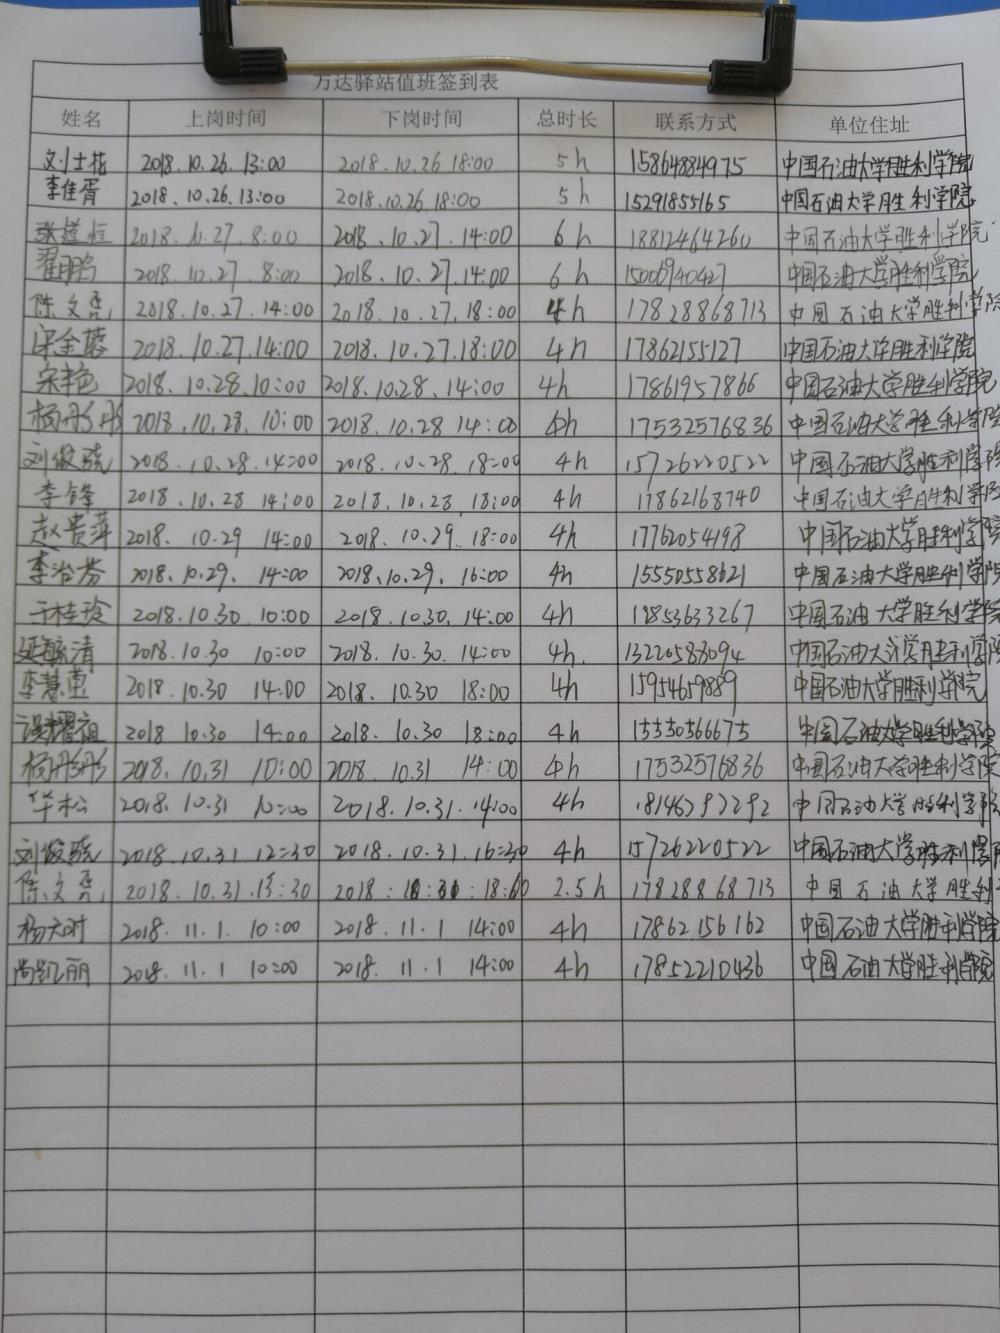 万达驿站值班签到表
姓名 上岗时间 下岗时间 总时长 联系方式 单位住址
刘士 2018.10.26.13:00 2018.10.26 18:00 5h 15864884975 中国石油大学胜利学院
李佳霄 2018.10.26.13:00 2018.10.26.18:00 5h 15291855165 中国石油大学胜利学院
张道恒 2018.10.27.8:00 2018.10.27.14:00 6h 18812464260 中国石油大学胜利学院
翟鹏 2018.10.27.8:00 2018.10.27.14:00 6h 15006940427 中国石油大学胜利学院
陈文 2018.10.27.14:00 2018.10.27.18:00 4h 17828868713 中国石油大学胜利学院
宋金蓉 2018.10.27.14:00 2018.10.27.18:00 4h 17862155127 中国石油大学胜利学院
宋艳 2018.10.28.10:00 2018.10.28.14:00 4h 17861957866 中国石油大学胜利学院
杨彤彤 2018.10.28.10:00 2018.10.28 14:00 4h 17532576836 中国石油大学胜利学院
刘俊骁 2018.10.28.14:00 2018.10.28.18:00 4h 15726220522 中国石油大学胜利学院
李锋 2018.10.28 14:00 2018.10.28.18:00 4h 17862168740 中国石油大学胜利学院
赵贵萍 2018.10.29 14:00 2018.10.29.18:00 4h 17762054198 中国石油大学胜利学院
李治芬 2018.10.29.14:00 2018.10.29.16:00 4h 15550558621 中国石油大学胜利学院
于桂玲 2018.10.30.10:00 2018.10.30.14:00 4h 18853633267 中国石油大学胜利学院
延毓清 2018.10.30 10:00 2018.10.30.14:00 4h 13220583094 中国石油大学胜利学院
李慧 2018.10.30 14:00 2018.10.30 18:00 4h 15954659889 中国石油大学胜利学院
耀祖 2018 10.30 14:00 2018.10.30 18:00 4h 15550366675 中国石油大学胜利学院
杨彤彤 2018.10.31 10:00 2018.10.31 14:00 4h 17532576836 中国石油大学胜利学院
华松 2018.10.31 10:00 2018.10.31.14:00 4h 18146292292 中国石油大学胜利学院
刘俊骁 2018.10.31 12:30 2018.10.31.16:30 4h 15726220522 中国石油大学胜利学院
陈文 2018.10.31.15:30 2018:10:31:18:00 2.5h 17828868713 中国石油大学胜利
杨天时 2018.11.1.10:00 2018.11.1 14:00 4h 17862156162 中国石油大学胜利学院
尚凯丽 2018.11.1 10:00 2018.11.1 14:00 4h 17852210436 中国石油大学胜利学院